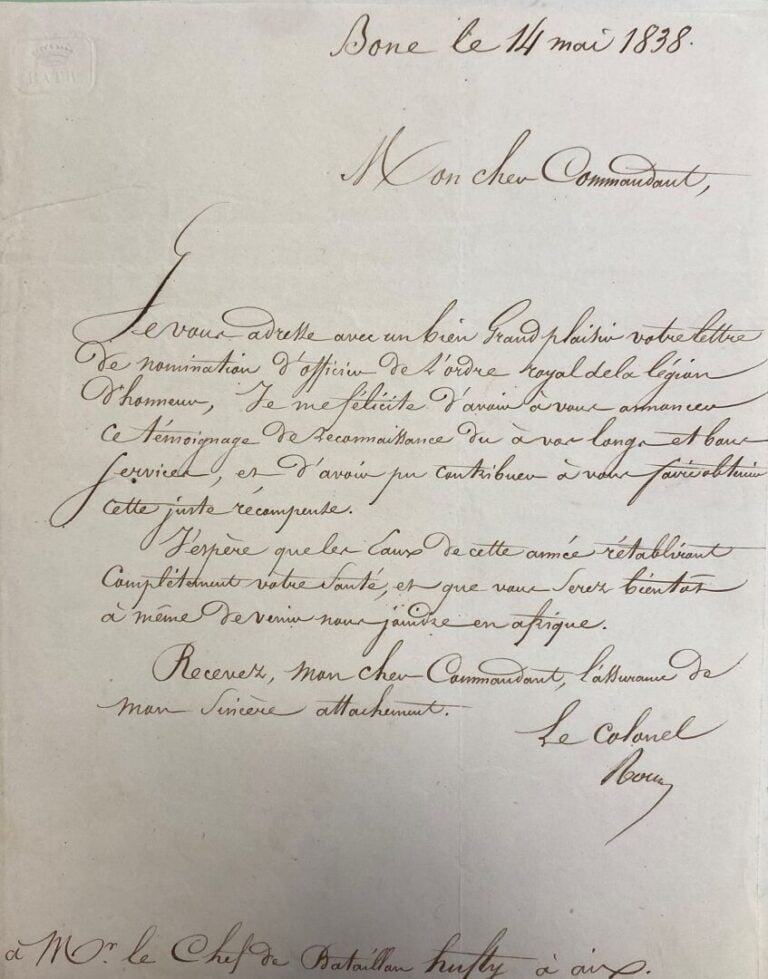 BATH
Bone le 14 mai 1838.
Mon cher Commandant,
Je vous adresse avec un bien Grand plaisir votre lettre
de nomination d'officier de L'ordre royal de la légion
D'honneur, Je me félicite d'avoir à vous annoncer
ce témoignage de reconnaissance du à vos longs et bons
services, et d'avoir pu contribuer à vous faire obtenir
cette juste récompense.
J'espère que les Eaux de cette année rétabliront
Complètement votre Santé, et que vous Serez bientôt
à même de venir nous joindre en afrique.
Recevez, mon cher Commandant, l'assurance de
mon Sincère attachement.
Le Colonel
à Mr. le Chef de Bataillon à aix.